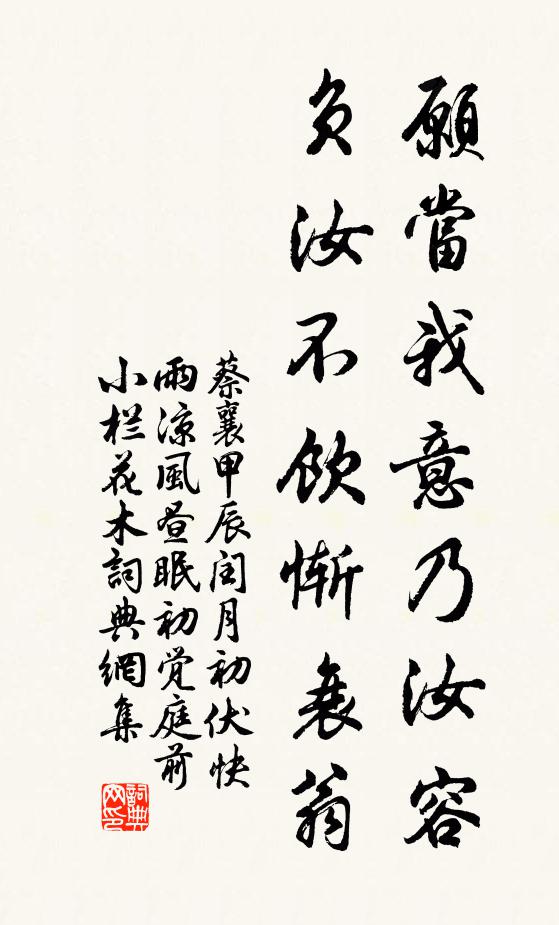 願當我意乃汝容
負汝不飲慚衰翁
蔡襄甲辰閏月初伏快
雨涼風昼眠初觉庭前
小栏花木詞典網集
詞典网印